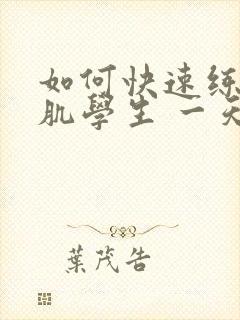 如何快速练
肌學生 一天
葉茂告